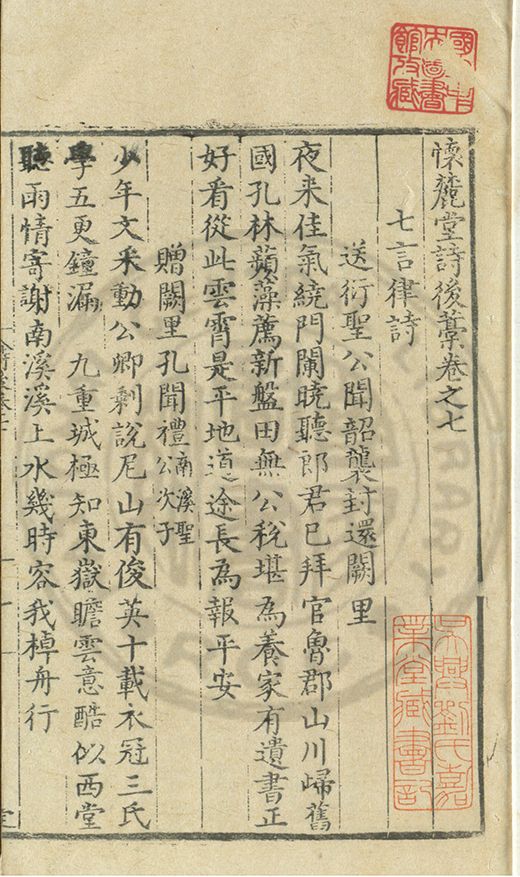 懷麓堂詩後藁卷之七
七言律詩
送衍聖公聞韶襲封還闕里
夜来佳氣繞門闌曉聽郎君已拜官魯郡山川歸舊
國孔林蘋藻薦新盤田無公稅堪為養家有遺書正
好看從此雲霄是平地道途長為報平安
贈闕里孔聞禮南溪聖公次子
少年文采動公卿剩說尼山有俊英十載衣冠三氏
學五更鐘漏九重城極知東嶽瞻雲意酷似西堂
聽雨情寄謝南溪溪上水幾時容我棹舟行
吳興劉氏嘉
業堂藏書記